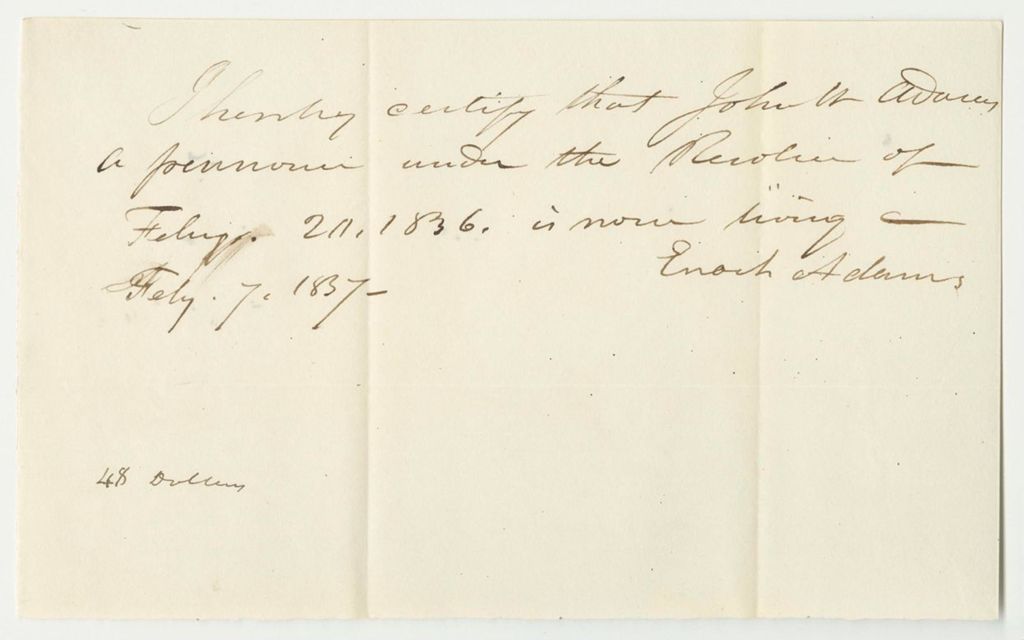 I hereby certify that John W Adams
a pensioner under the Resolve of
Feby. 20, 1836. is now living
Enoch Adams
Feby. 7, 1837
48 Dollars